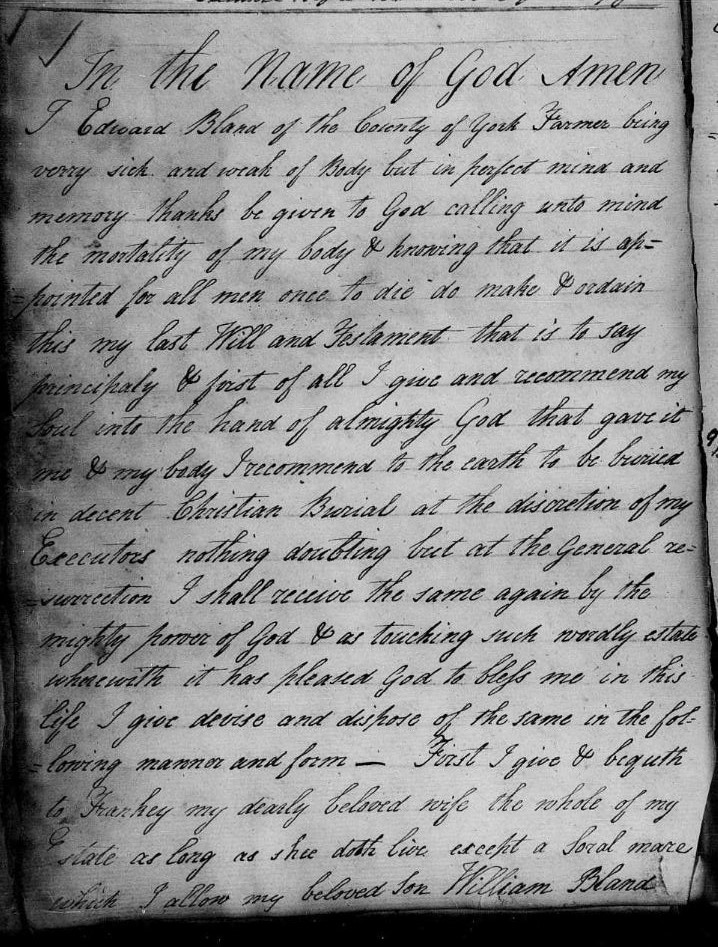 In the Name of God Amen
I Edward Bland of the County of York Farmer being
verry sick and weak of Body but in perfect mind and
memory thanks be given to God calling unto mind
the mortality of my body & knowing that it is ap=
=pointed for all men once to die do make & ordain
this my last Will and Testament that is to say
principaly & first of all I give and recommend my
Soul into the hand of almighty God that gave it
me & my body I recommend to the earth to be buried
in decent Christian Burial at the discretion of my
Executors nothing doubting but at the General re=
=surrection I shall receive the same again by the
mighty power of God & as touching such wordly estate
wherewith it has pleased God to bless me in this
life I give devise and dispose of the same in the fol=
=lowing manner and form — First I give & bequth
to Frankey my dearly beloved wife the whole of my
Estate as long as shee doth live except a Soral mare
which I allow my beloved Son William Bland